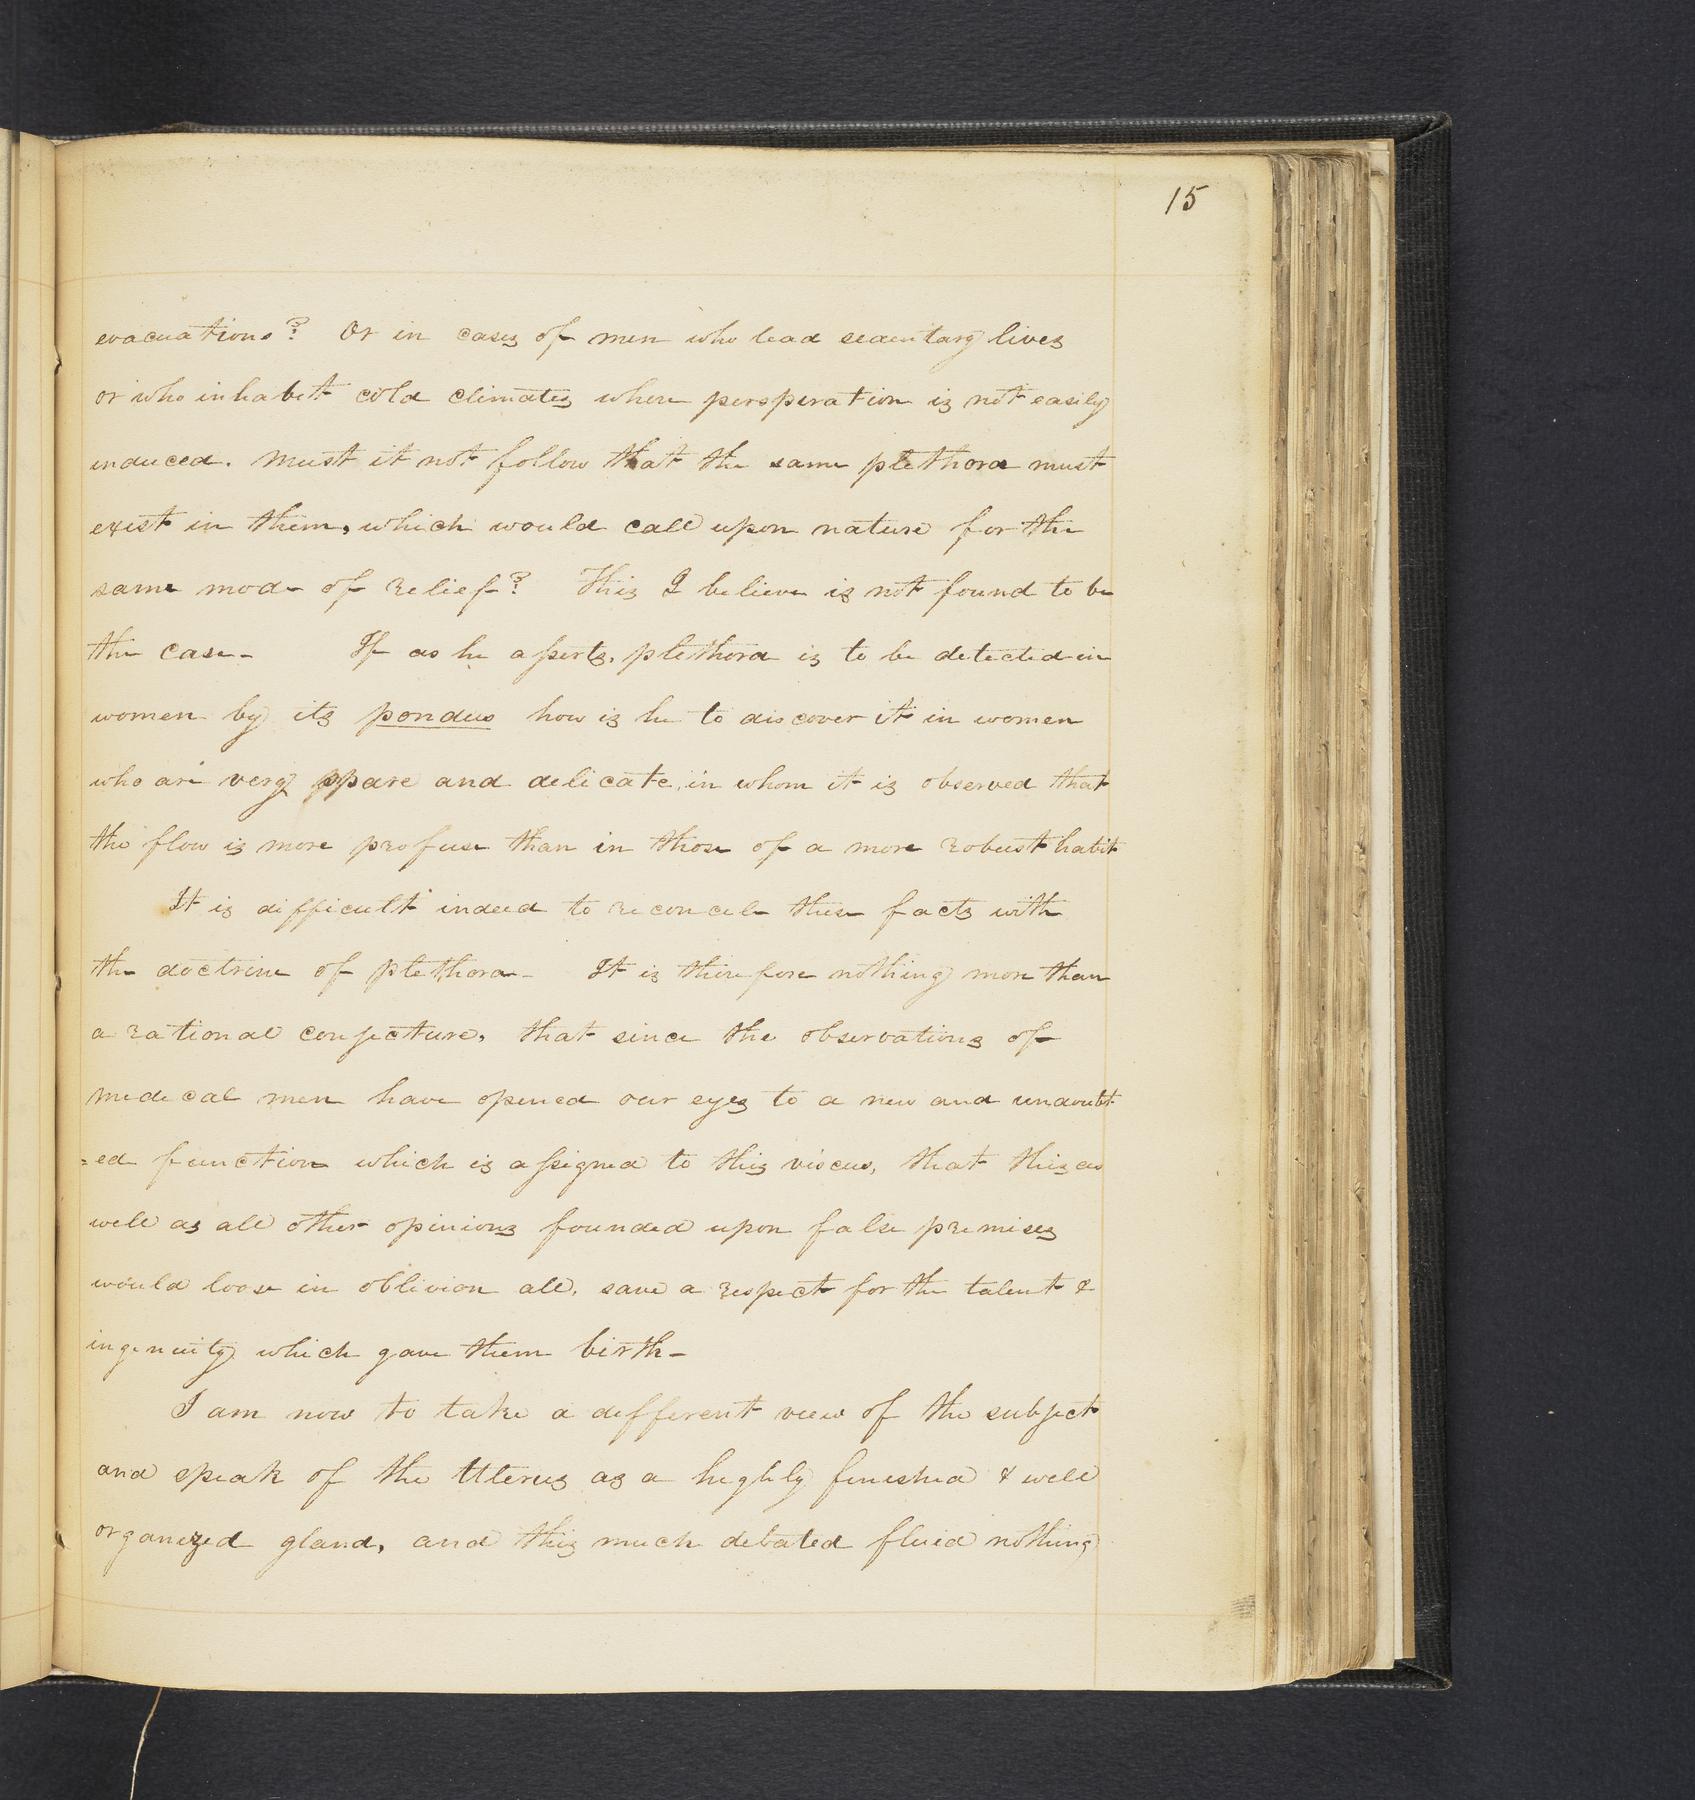 15
evacuations? Or in cases of men who lead sedentary lives
or who inhabit cold climates where persperation is not easily
induced. Must it not follow that the same plethora must
exist in them, which would call upon nature for the
same mode of relief? This I believe is not found to be
the case- If as he asserts, plethora is to be detected in
women by its pondus how is he to discover it in women
who are very spare and delicate, in whom it is observed that
the flow is more profuse than in those of a more robust habit
It is difficult indeed to reconcile these facts with
the doctrine of plethora- It is therefore nothing more than
a rational conjecture, that since the observations of
medical men have opened our eyes to a new and undoubt
=ed function which is assigned to this viscus, that this as
well as all other opinions founded upon false premises
would loose in oblivion all, save a respect for the talent &
ingenuity which gave them birth-
I am now to take a different view of the subject
and speak of the Uterus as a highly finished & well
organized gland, and this much debated fluid nothing